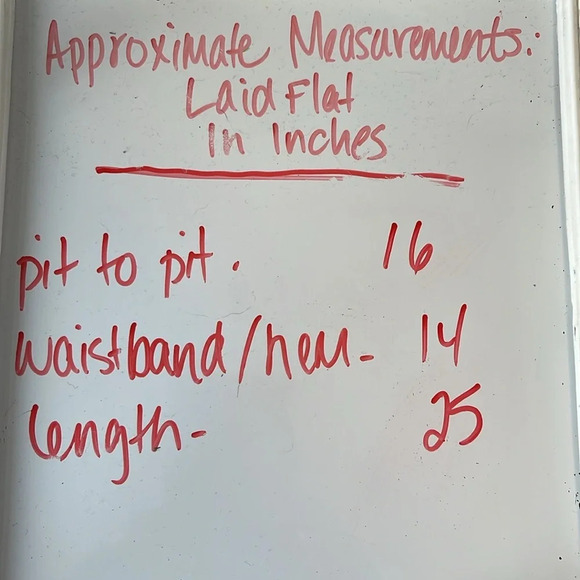 Approximate Measurements:
Laid Flat
In Inches
pit to pit. 16
waistband/hem- 14
length- 25